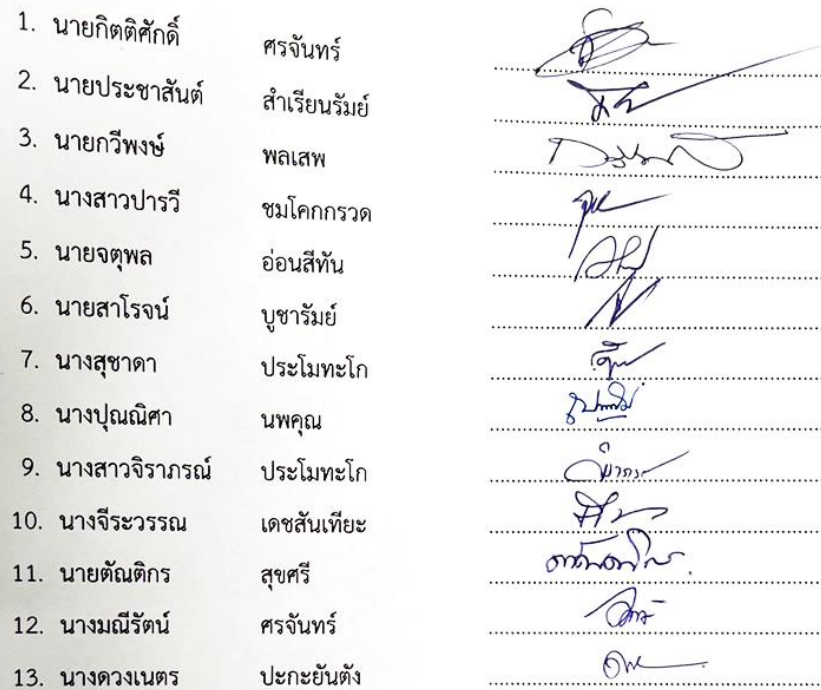 1. นายกิตติศักดิ์ ศรจันทร์
2. นายประชาสันต์ สำเรียนรัมย์
3. นายกวีพงษ์ พลเสพ
4. นางสาวปารวี ชมโคกกรวด
5. นายจตุพล อ่อนสีทัน
6. นายสาโรจน์ บูชารัมย์
7. นางสุชาดา ประโมทะโก
8. นางปุณณิศา นพคุณ
9. นางสาวจิราภรณ์ ประโมทะโก
10. นางจีระวรรณ เดชสันเทียะ
11. นายตัณติกร สุขศรี
12. นางมณีรัตน์ ศรจันทร์
13. นางดวงเนตร ปะกะยันตัง